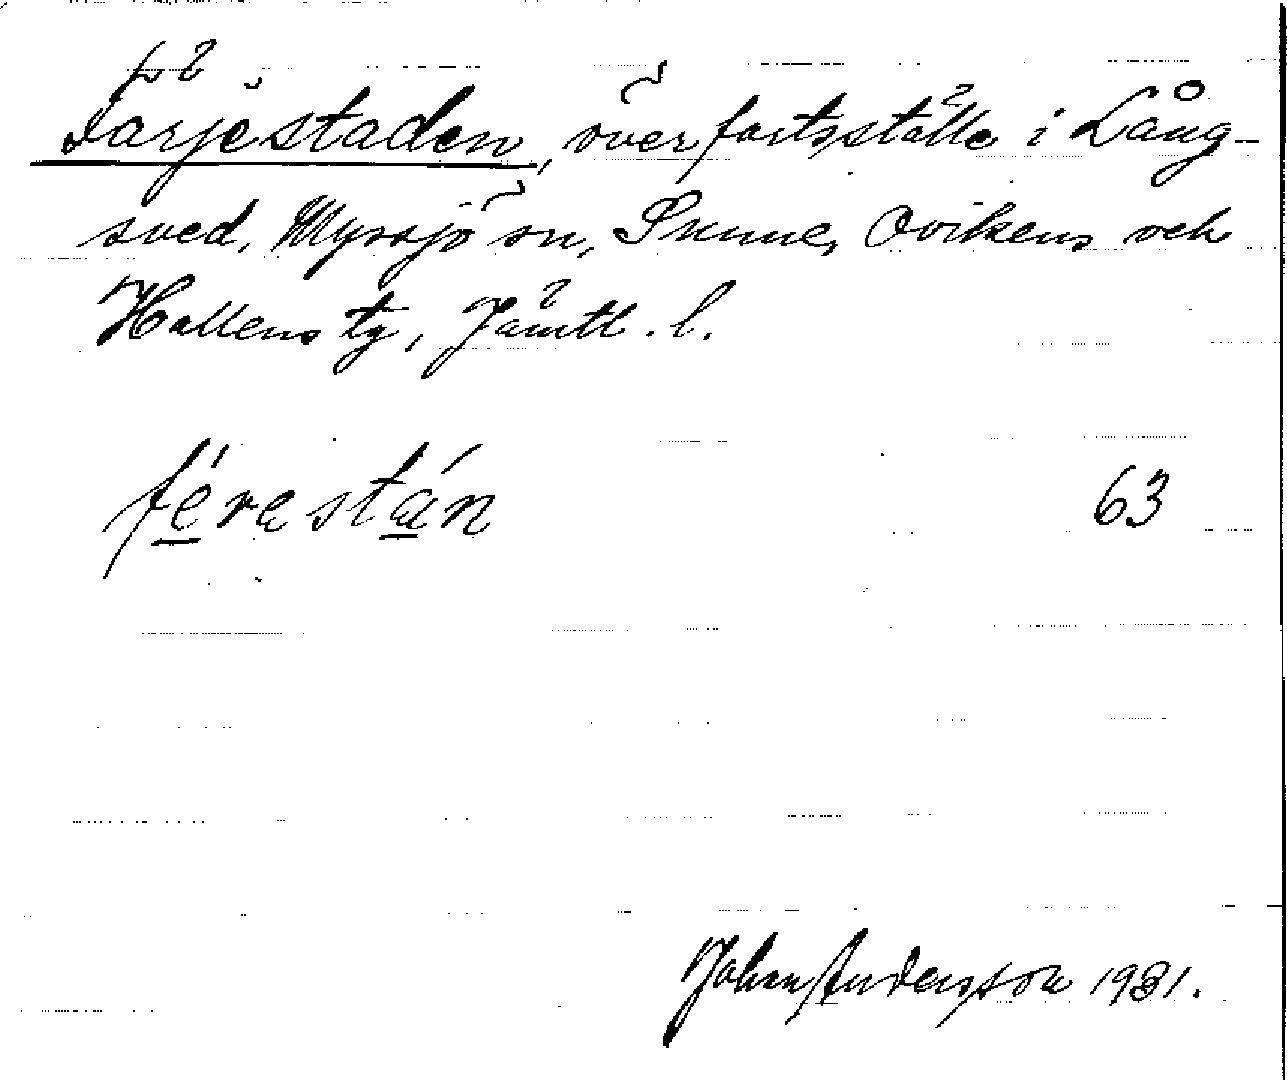 Färjestaden, överfartsställe i Lång-
sved, Myssjö sn, Sunne, Ovikens och
Hallens tg, Jämtl. l.
férastán 63
Johan Andersson 1931.